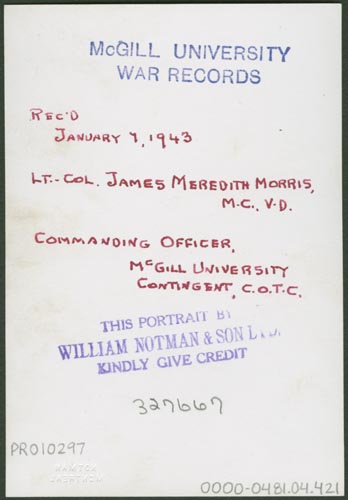 McGILL UNIVERSITY
WAR RECORDS
REC'D
JANUARY 7, 1943
LT.-COL. JAMES MEREDITH MORRIS,
M.C., V.D.
COMMANDING OFFICER,
McGILL UNIVERSITY
CONTINGENT, C.O.T.C.
THIS PORTRAIT BY
WILLIAM NOTMAN & SON LTD.
KINDLY GIVE CREDIT
327667
PR010297
0000-0481.04.421